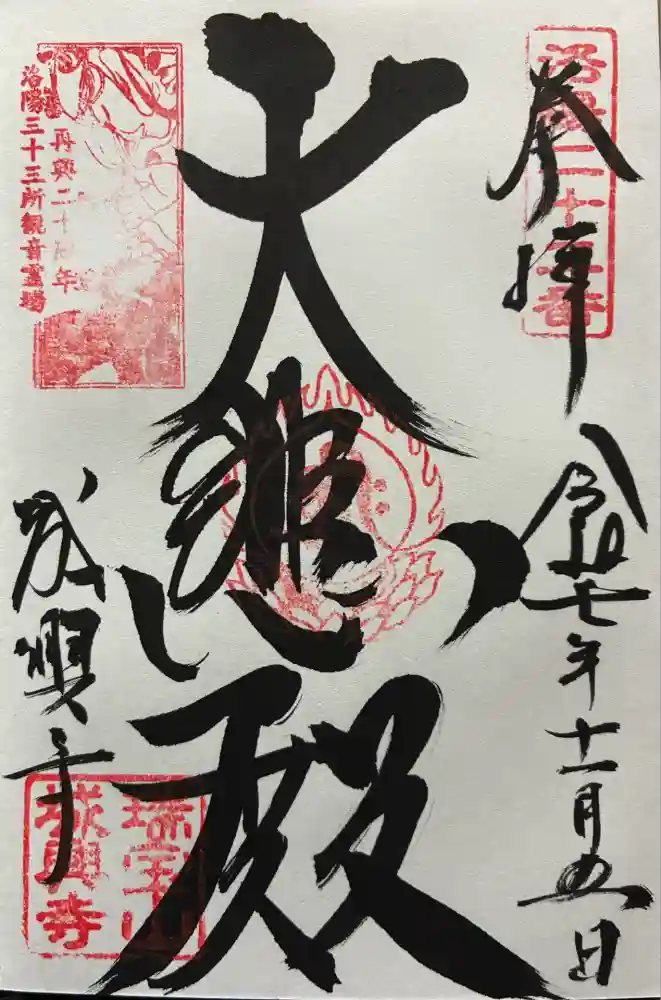 洛陽二十二番
奉拝
令和七年十一月五日
大悲殿
再興二十周年
洛陽三十三所観音霊場
城興寺
瑞宝山
城興寺